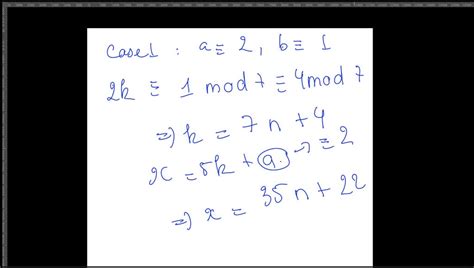 Case 1 : a ≡ 2, b ≡ 1
2k ≡ 1 mod 7 ≡ 4 mod 7
⇒ k = 7n + 4
x = 5k + a → ≡ 2
⇒ x = 35n + 22